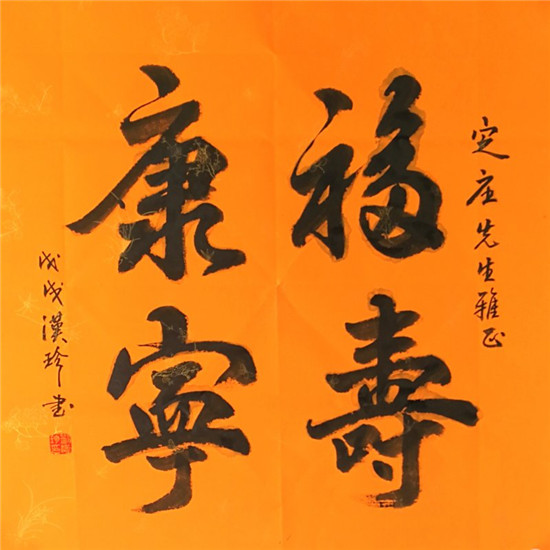 定庄先生雅正
福壽
康寧
戊戌漢珍書